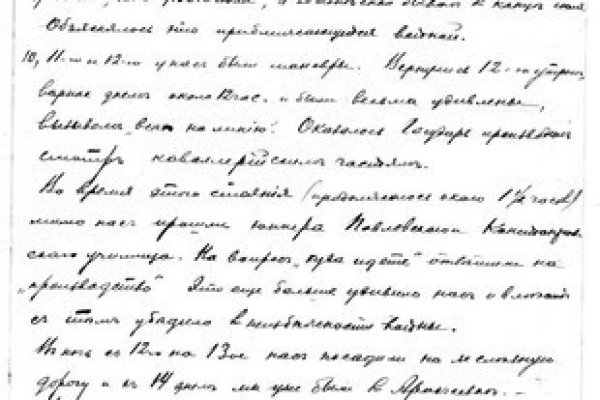 Объяснялось это приближающейся войной.
10, 11-го и 12-го у нас были маневры. Вернулись 12-го утром,
вернее днем около 12 час. и были весьма удивлены,
вызывом „всех на линию“. Оказалось Государь производил
смотръ кавалерийским частям.
Во время этого стояния (продолжалось около 1½ часов)
мимо нас прошли юнкера Павловского
училища. На вопрос „куда идете“ ответили на
„производство“ Это еще больше удивило нас и
с тем убедило в неизбежности войны.
В ночь с 12го на 13ое нас посадили на железную
дорогу и с 14 днем мы уже были в